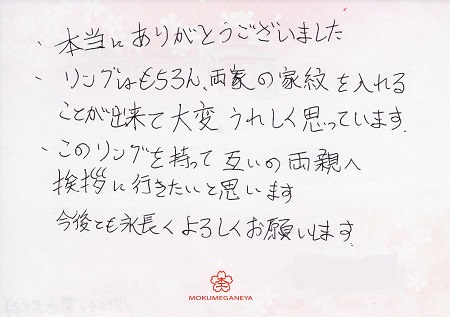 、本当にありがとうございました
、リングはもちろん、両家の家紋を入れる
ことが出来て大変うれしく思っています.
、このリングを持って互いの両親へ
挨拶に行きたいと思います
今後とも永長くよろしくお願いします.
MOKUMEGANEYA